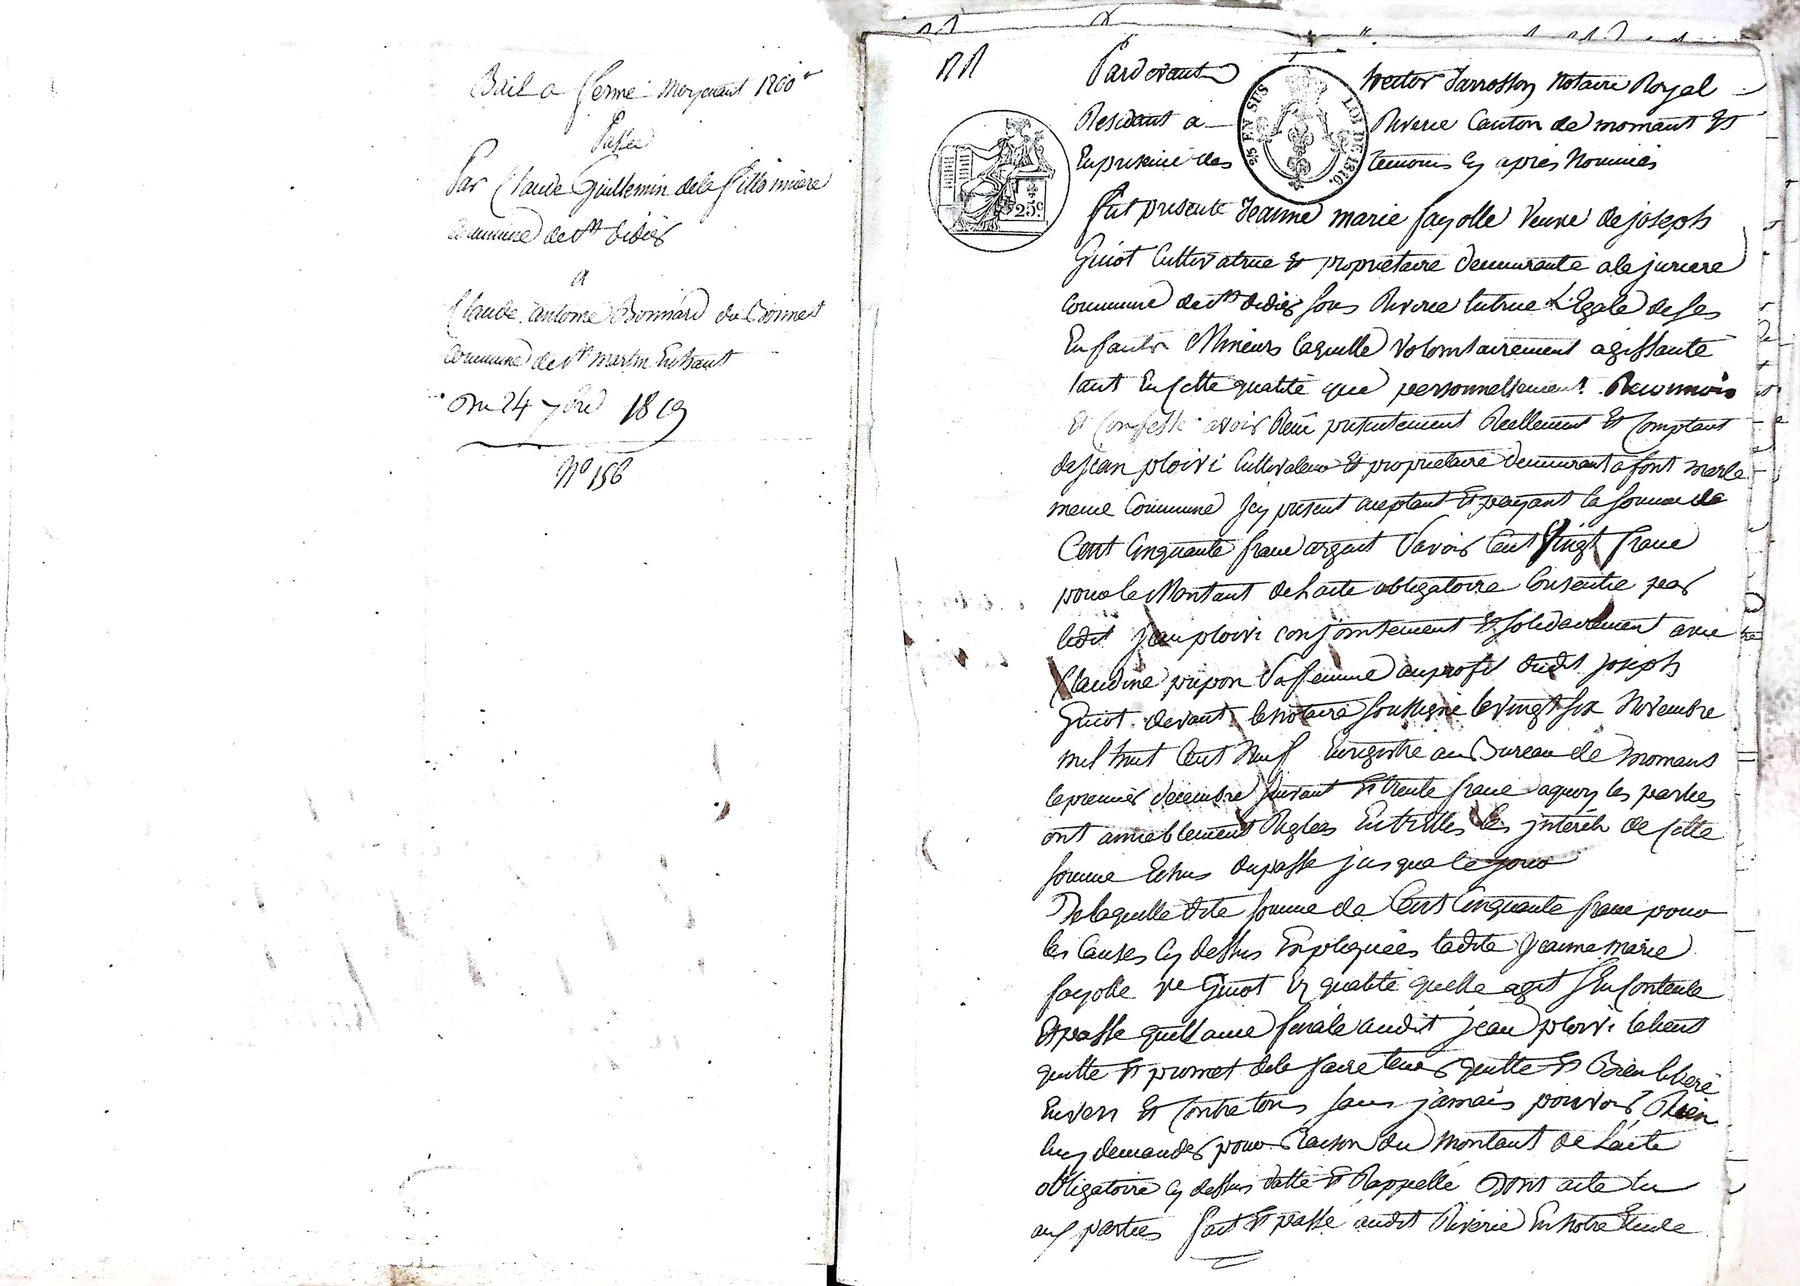 Bail a ferme moyenant 1200 fr
Passée
Par Claude Guillemin de la
commune de St didier
a
Claude antoine Bonnard du Bonnet
commune de St martin En haut
Du 24 7bre 1819
No 156
Pardevant hector Jarrosson Notaire Royal
Residant a Riverie Canton de mornant Et
En presence des temoins cy après Nommés
25 EN SUS LOI DE 1816.
25c
fut presente Jeanne marie fayolle Veuve de joseph
Guiot Cultivatrice et proprietaire demeurante a la juriere
commune de St didier sous Riverie tutrice L'Egale de ses
Enfants Mineurs laquelle volontairement agissante
tant En cette qualité que personnellement Reconnois
et Confesse avoir Reçû presentement Reellement et Comptant
de jean ploivi Cultivateur et proprietaire demeurant a font merle
meme Commune Jcy present aceptant et payant la somme de
Cent Cinquante franc argent Savoir Cent Vingt franc
pour le Montant de L'acte obligatoire Consentie par
ledit jean ploivi conjointement et solidairement avec
Claudine pupon Sa femme au profit dudit joseph
Guiot devant le notaire soussigné le vingt six Novembre
mil huit Cent Neuf Enregistré au Bureau de mornant
le premier decembre suivant et trente franc a quoy les parties
ont amiablement Reglées Entr'elles les jnterêts de cette
somme Echus du passé jusqua ce jour
De laquelle dite somme de Cent Cinquante franc pour
les Causes cy dessus Expliquées ladite Jeanne marie
fayolle ve Guiot Es qualité quelle agit s'En Contente
Et passe quittance finale audit jean ploivi le tient
quitte et promet de le faire tenir quitte et Bien liberé
Envers et Contre tous sans jamais pouvoir Rien
luy demander pour Raison du Montant de L'acte
obligatoire cy dessus datté et Rappellé Dont acte lu
aux parties fait et passé audit Riverie En notre Etude